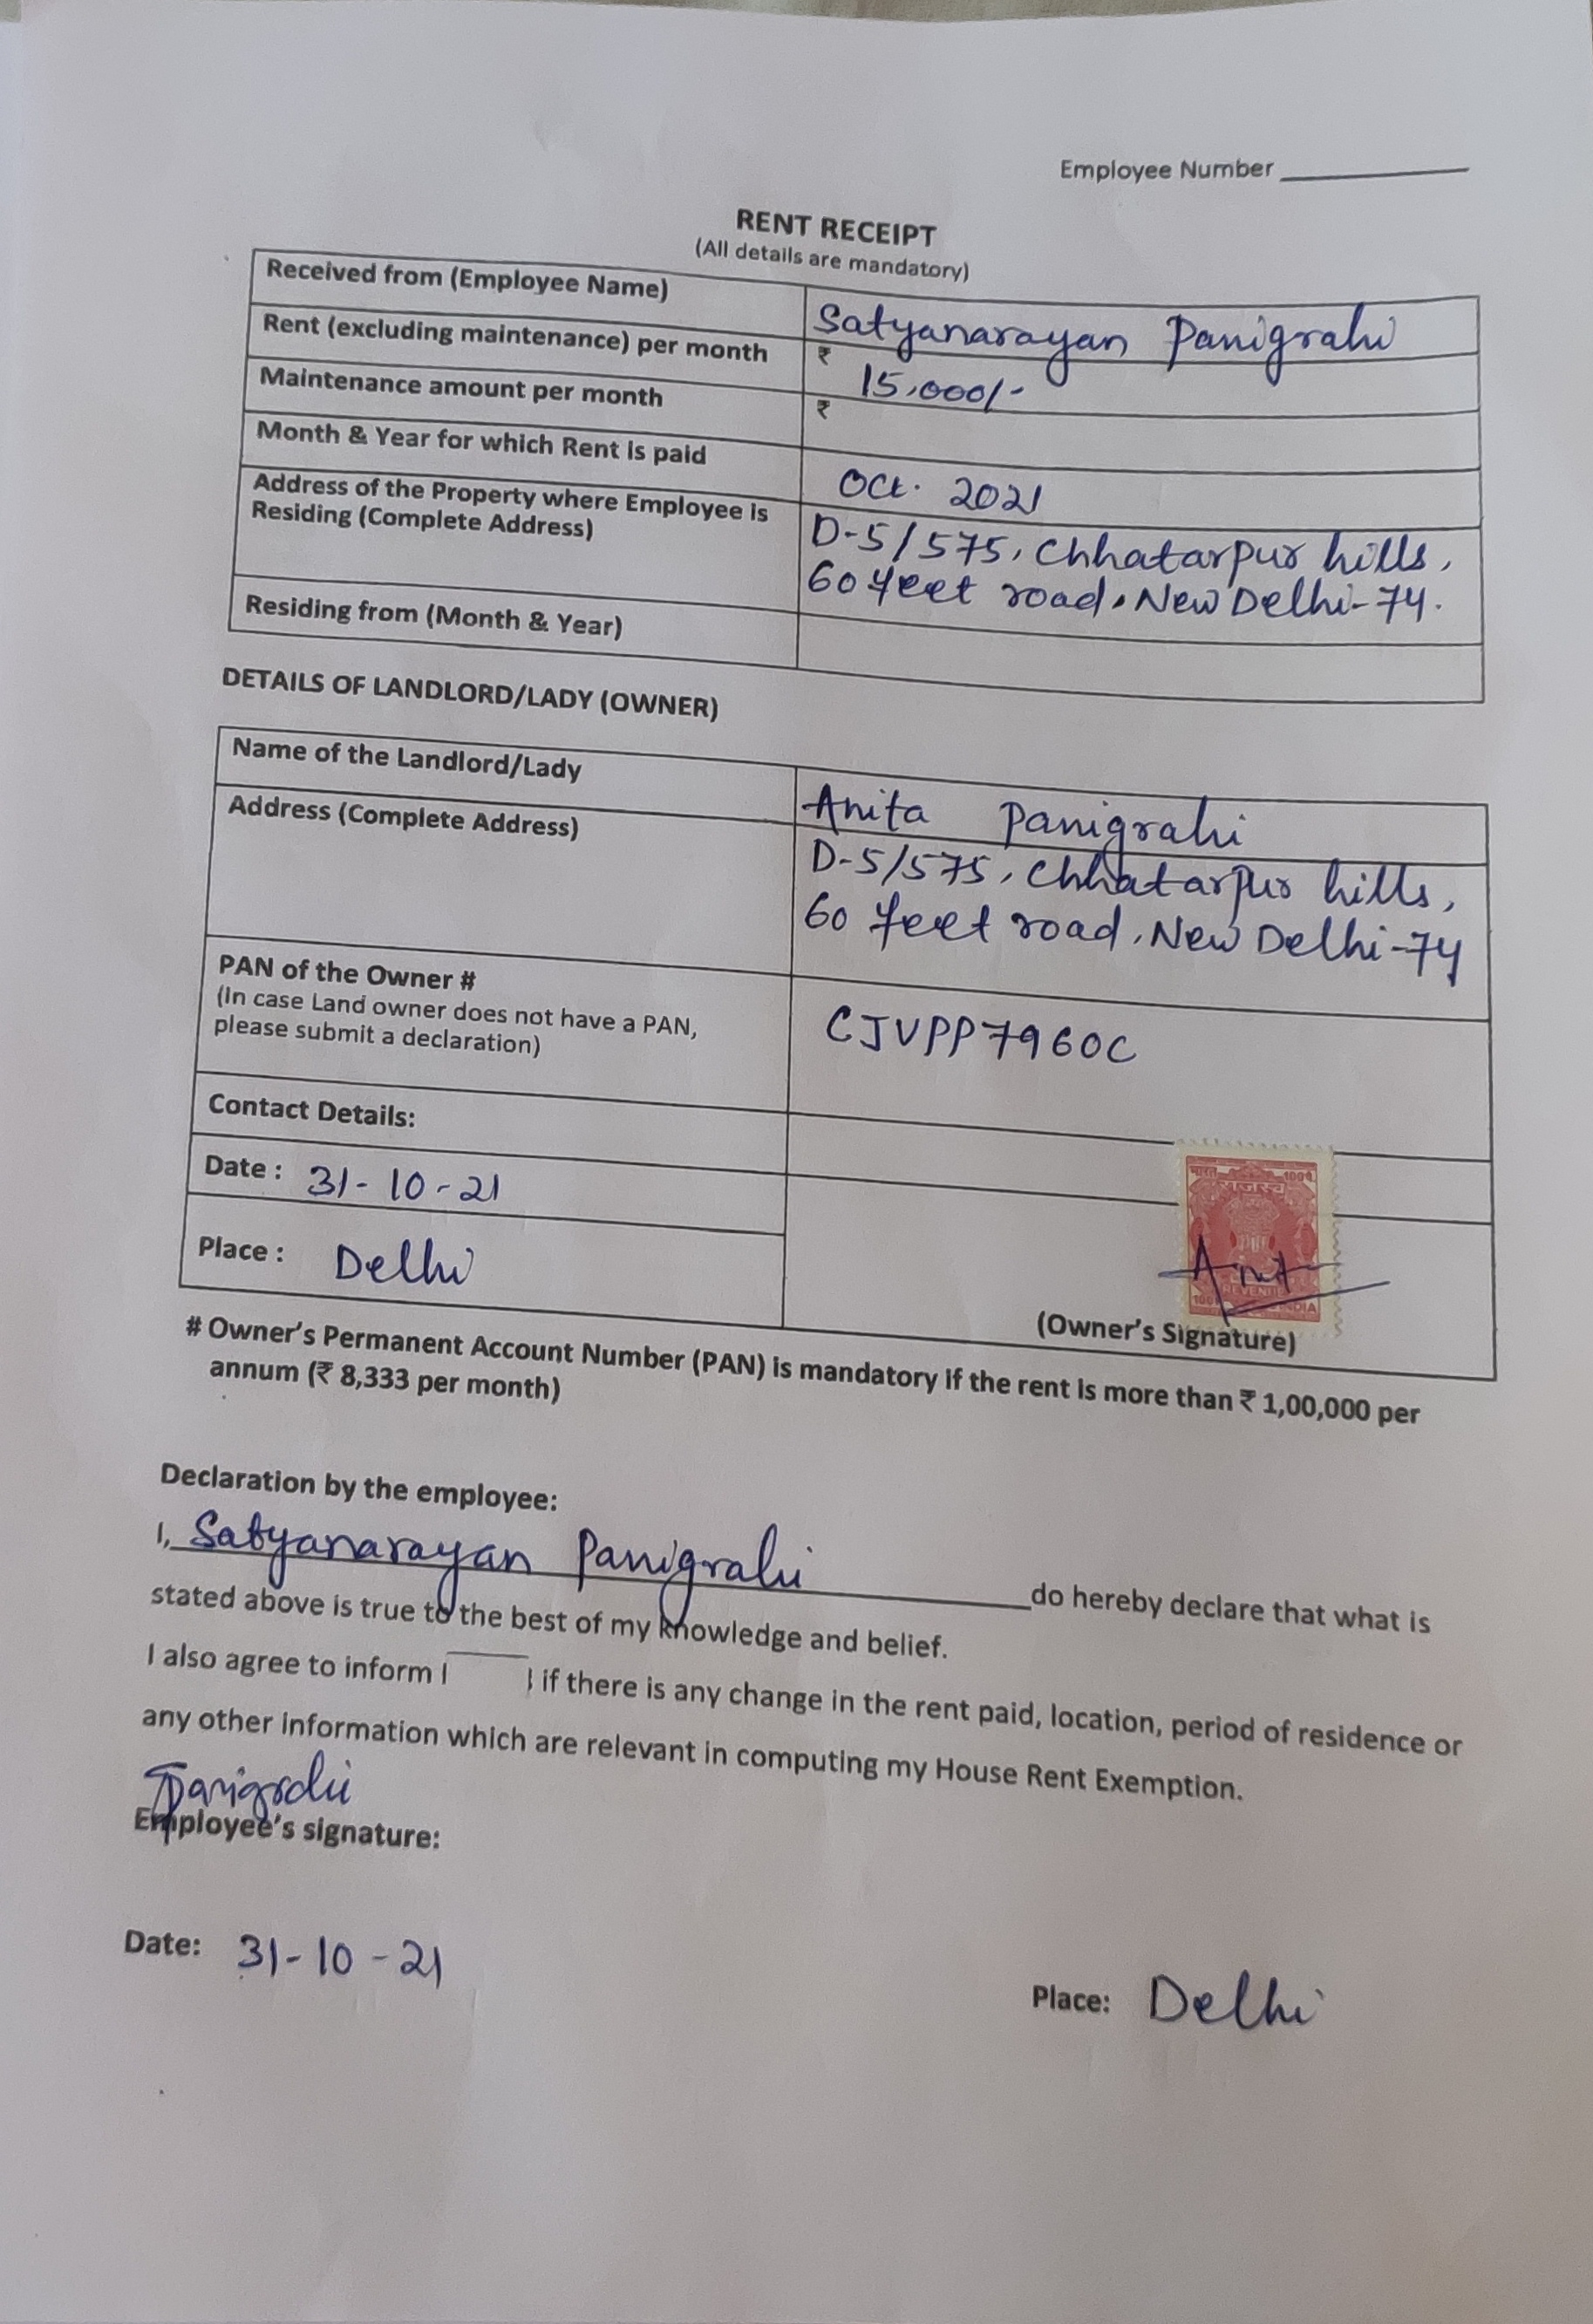 Employee Number
RENT RECEIPT
(All details are mandatory)
Received from (Employee Name) Satyanarayan Panigrahi
Rent (excluding maintenance) per month ₹ 15,000/-
Maintenance amount per month ₹
Month & Year for which Rent is paid Oct. 2021
Address of the Property where Employee is D-5/575, Chhatarpur hills,
Residing (Complete Address) 60 feet road, New Delhi-74.
Residing from (Month & Year)
DETAILS OF LANDLORD/LADY (OWNER)
Name of the Landlord/Lady Anita Panigrahi
Address (Complete Address) D-5/575, Chhatarpur hills,
60 feet road, New Delhi-74
PAN of the Owner # CJVPP7960C
(In case Land owner does not have a PAN,
please submit a declaration)
Contact Details:
Date : 31-10-21
Place : Delhi
भारत 100
राजस्व
REVENUE
100 INDIA
(Owner's Signature)
# Owner's Permanent Account Number (PAN) is mandatory if the rent is more than ₹ 1,00,000 per
annum (₹ 8,333 per month)
Declaration by the employee:
I, Satyanarayan Panigrahi do hereby declare that what is
stated above is true to the best of my knowledge and belief.
I also agree to inform if there is any change in the rent paid, location, period of residence or
any other information which are relevant in computing my House Rent Exemption.
Panigrahi
Employee's signature:
Date: 31-10-21
Place: Delhi